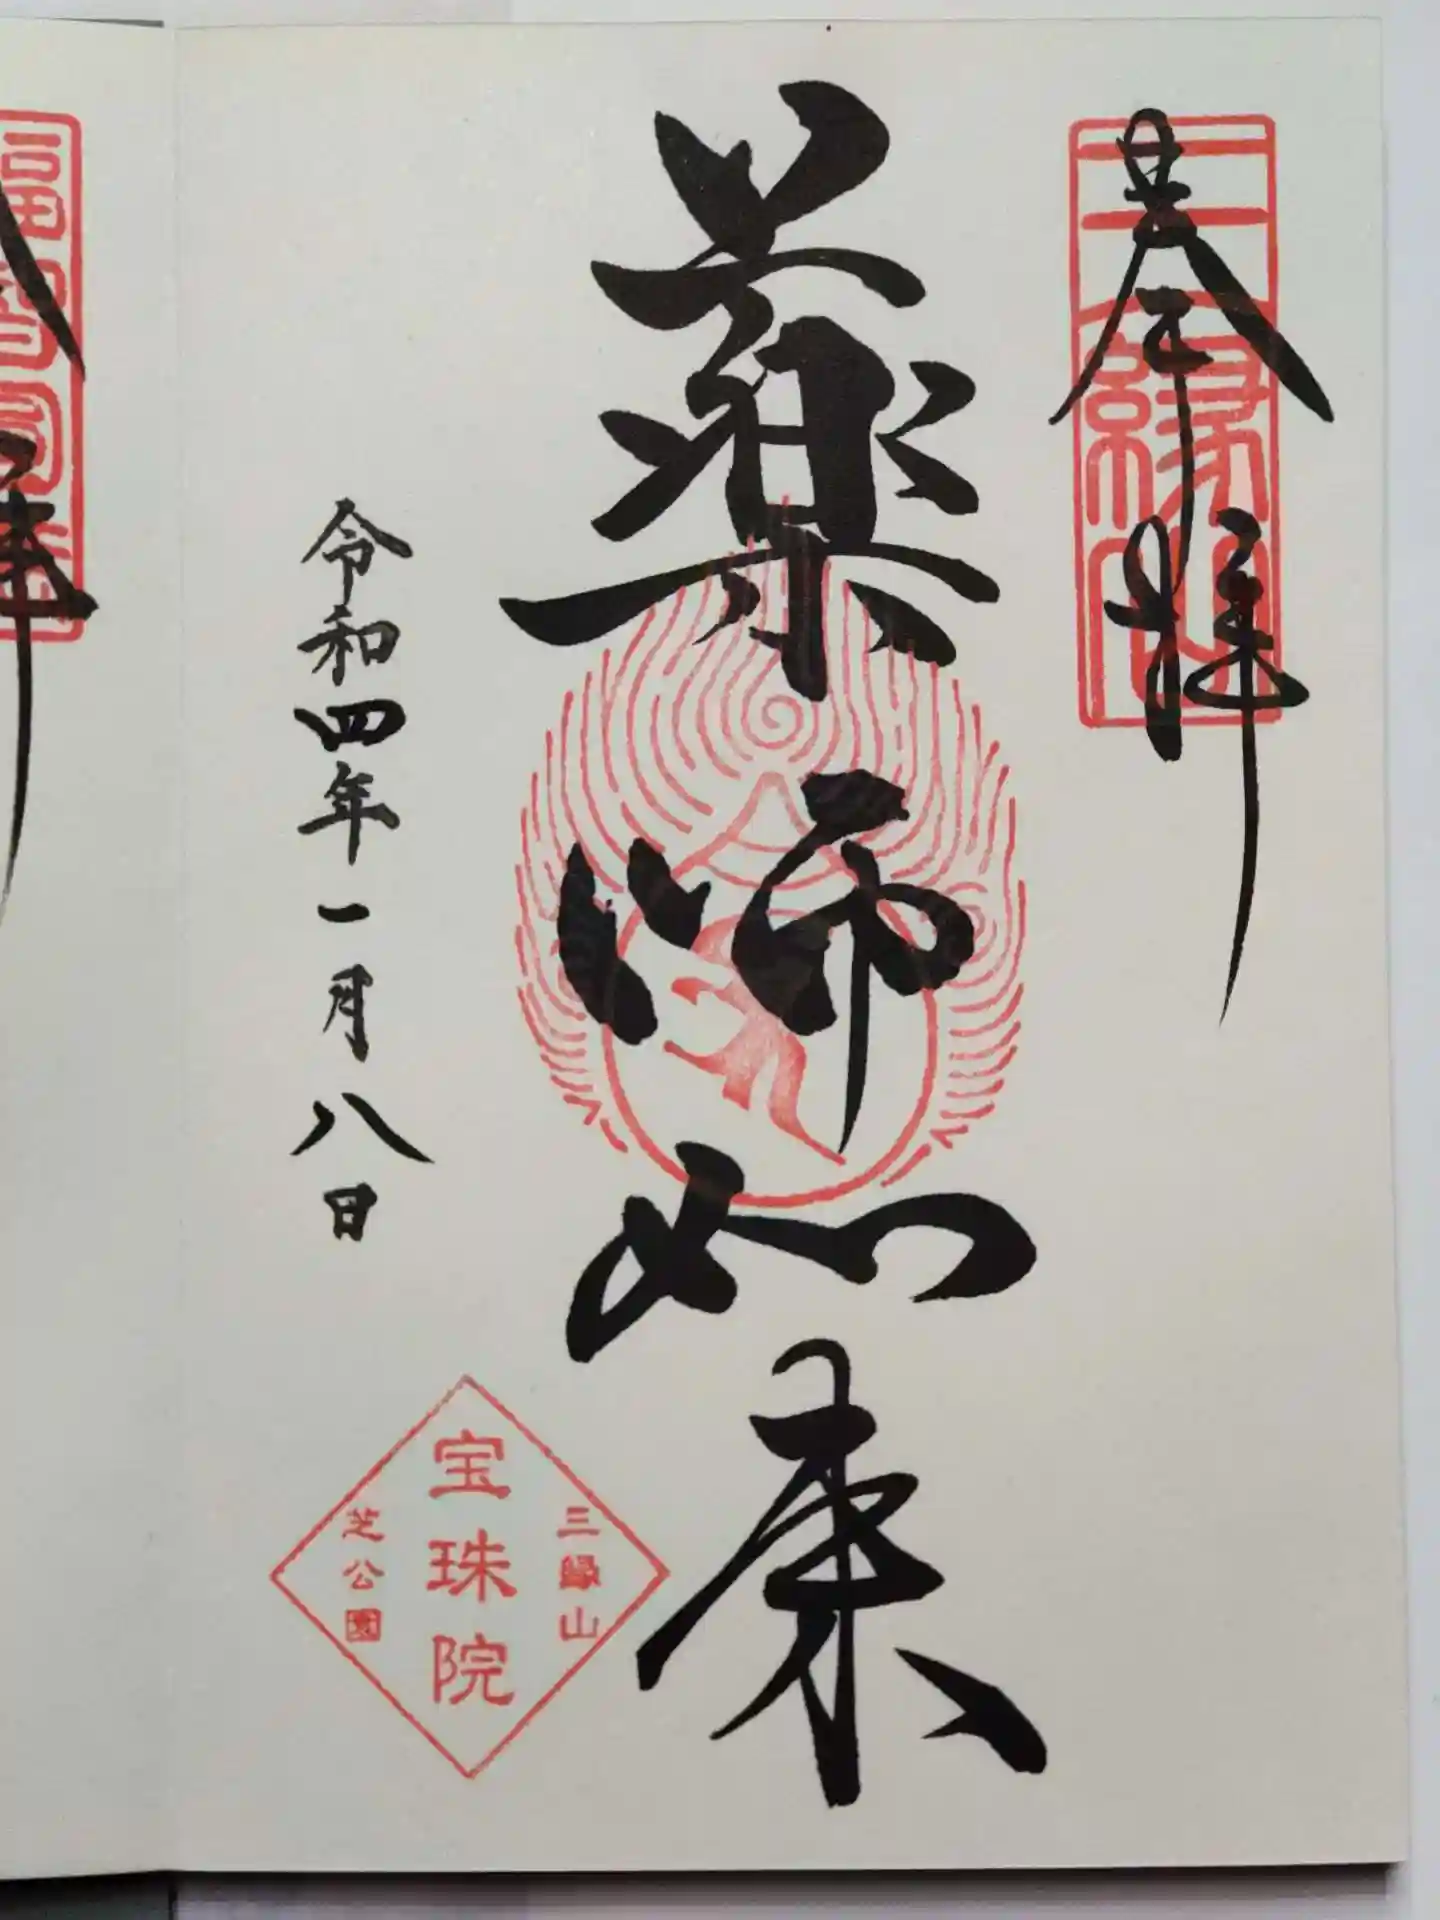 奉拝
三縁山
薬師如来
令和四年一月八日
三縁山
宝珠院
芝公園